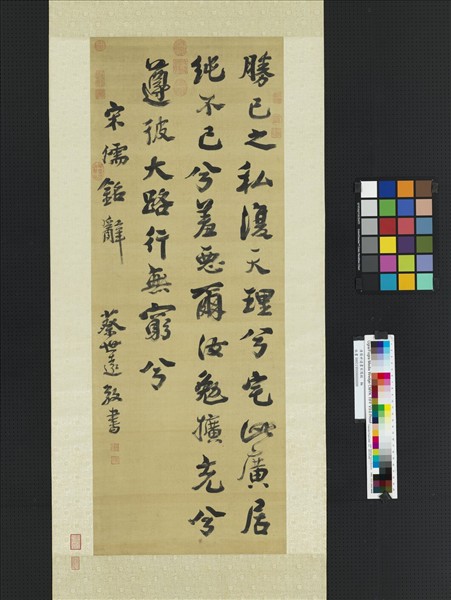 勝己之私復天理兮宅此廣居
純不已兮羞惡爾汝勉擴充兮
遵彼大路行無窮兮
宋儒銘辭
蔡世遠敬書